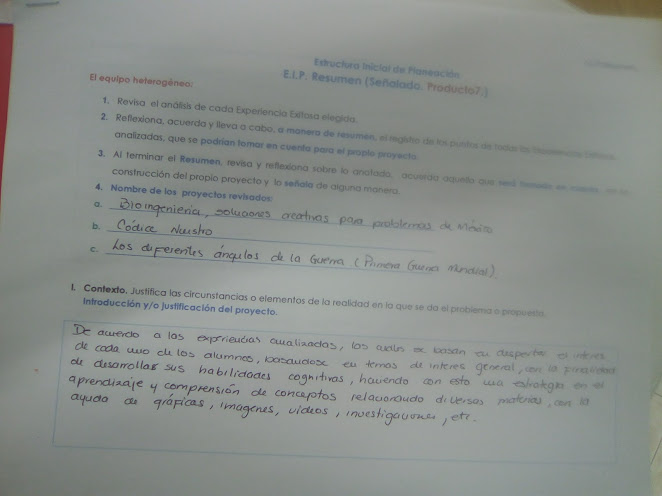 Estructura Inicial de Planeación
E.I.P. Resumen (Señalado. Producto7.)
El equipo heterogéneo:
1. Revisa el análisis de cada Experiencia Exitosa elegida.
2. Reflexiona, acuerda y lleva a cabo, a manera de resumen, el registro de los puntos de todas las Experiencias Exitosas
analizadas, que se podrían tomar en cuenta para el propio proyecto.
3. Al terminar el Resumen, revisa y reflexiona sobre lo anotado, acuerda aquello que será tomado en cuenta, en la
construcción del propio proyecto y lo señala de alguna manera.
4. Nombre de los proyectos revisados:
a. Bioingeniería, soluciones creativas para problemas de México
b. Códice Nuestro
c. Los diferentes ángulos de la Guerra (Primera Guerra Mundial).
I. Contexto. Justifica las circunstancias o elementos de la realidad en la que se da el problema o propuesta.
Introducción y/o justificación del proyecto.
De acuerdo a las experiencias analizadas, las cuales se basan en despertar el interés
de cada uno de los alumnos, basandose en temas de interes general, con la finalidad
de desarrollar sus habilidades cognitivas, haciendo con esto una estrategia en el
aprendizaje y comprensión de conceptos relacionando diversas materias, con la
ayuda de gráficas, imagenes, videos, investigaciones, etc.